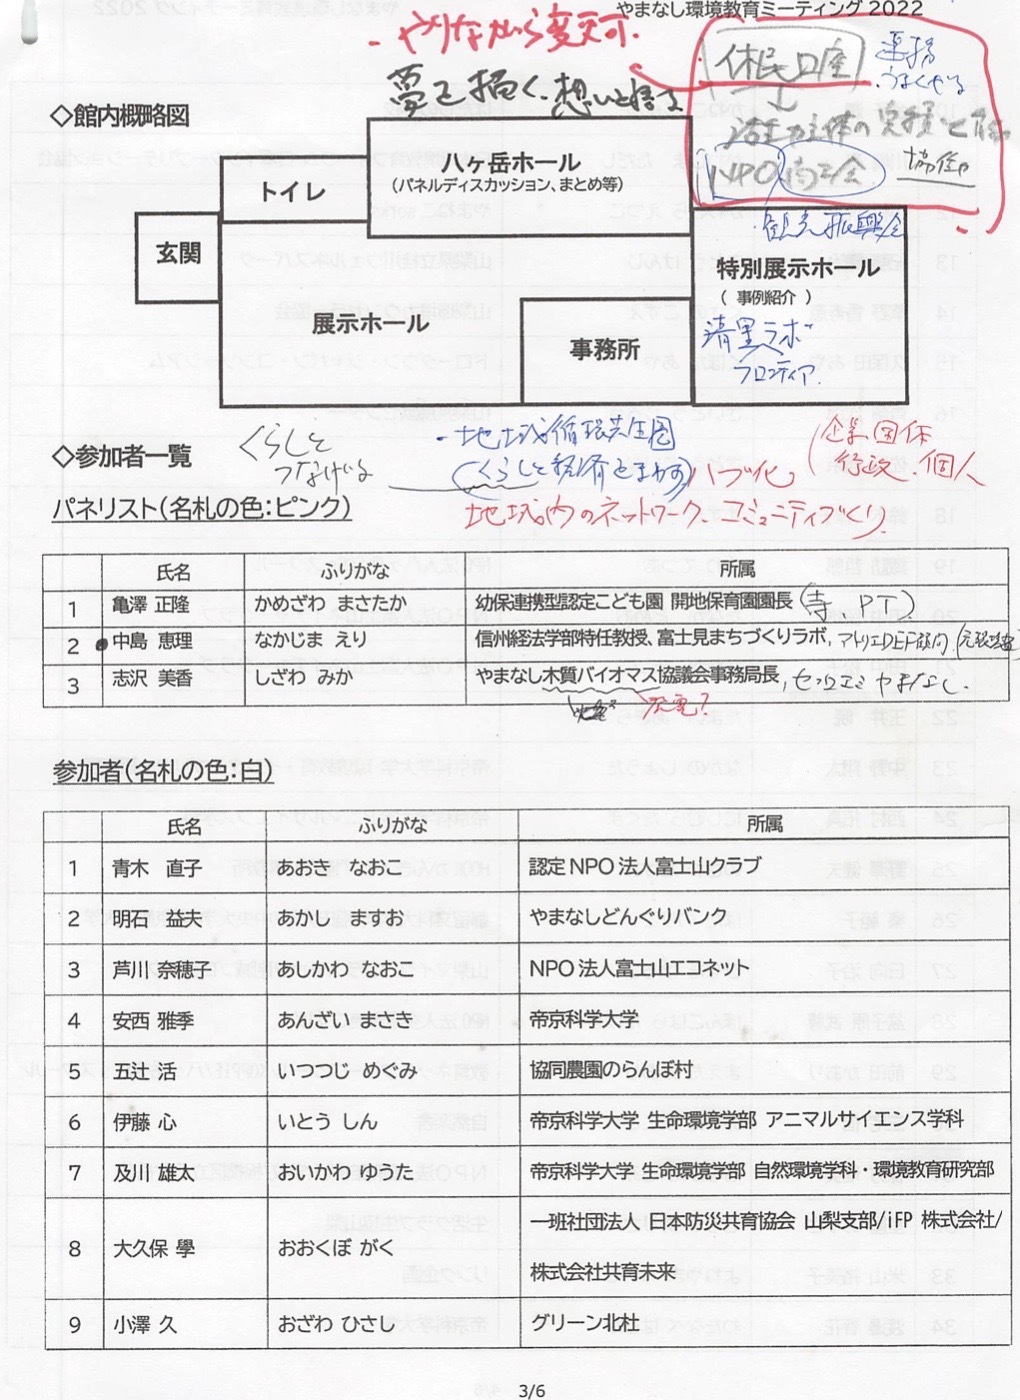 やまなし環境教育ミーティング 2022
- やりながら変更可.
休眠口座
連携
うまくやる
夢を描く、想いを語る
NPO 商工会
協働
◇館内概略図
八ヶ岳ホール
(パネルディスカッション、まとめ等)
トイレ
観光振興会
玄関
特別展示ホール
( 事例紹介 )
展示ホール
清里ラボ
事務所
フロンティア.
くらしと
つなげる
- 地域循環共生圏
企業 団体
行政、個人
◇参加者一覧
(くらしと経済とまわす) ハブ化、
パネリスト(名札の色:ピンク)
地域内のネットワーク、コミュニティづくり
氏名 ふりがな 所属
1 亀澤 正隆 かめざわ まさたか 幼保連携型認定こども園 開地保育園園長 (寺、PT)
2 中島 恵理 なかじま えり 信州経法学部特任教授、富士見まちづくりラボ、アトリエDEF顧問
3 志沢 美香 しざわ みか やまなし木質バイオマス協議会事務局長、ゼロエミやまなし.
発電?
参加者(名札の色:白)
氏名 ふりがな 所属
1 青木 直子 あおき なおこ 認定NPO法人富士山クラブ
2 明石 益夫 あかし ますお やまなしどんぐりバンク
3 芦川 奈穂子 あしかわ なおこ NPO法人富士山エコネット
4 安西 雅季 あんざい まさき 帝京科学大学
5 五辻 活 いつつじ めぐみ 協同農園のらんぼ村
6 伊藤 心 いとう しん 帝京科学大学 生命環境学部 アニマルサイエンス学科
7 及川 雄太 おいかわ ゆうた 帝京科学大学 生命環境学部 自然環境学科・環境教育研究部
8 大久保 學 おおくぼ がく 一班社団法人 日本防災共育協会 山梨支部/iFP 株式会社/
株式会社共育未来
9 小澤 久 おざわ ひさし グリーン北杜
3/6